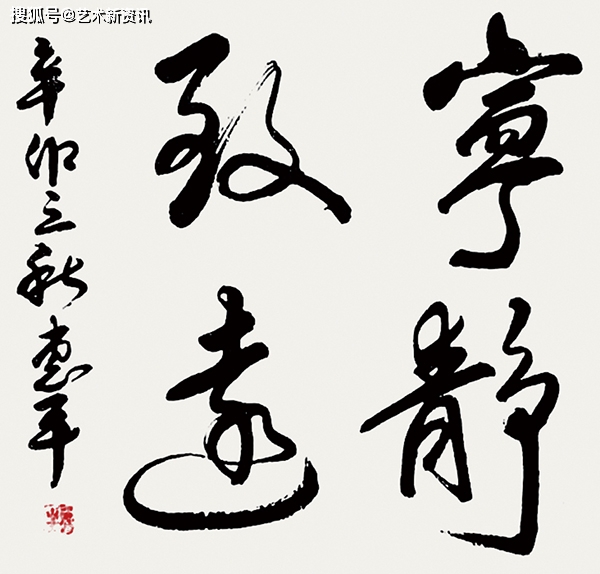 搜狐号@艺术新资讯
寧靜
致遠
辛卯之秋惠平